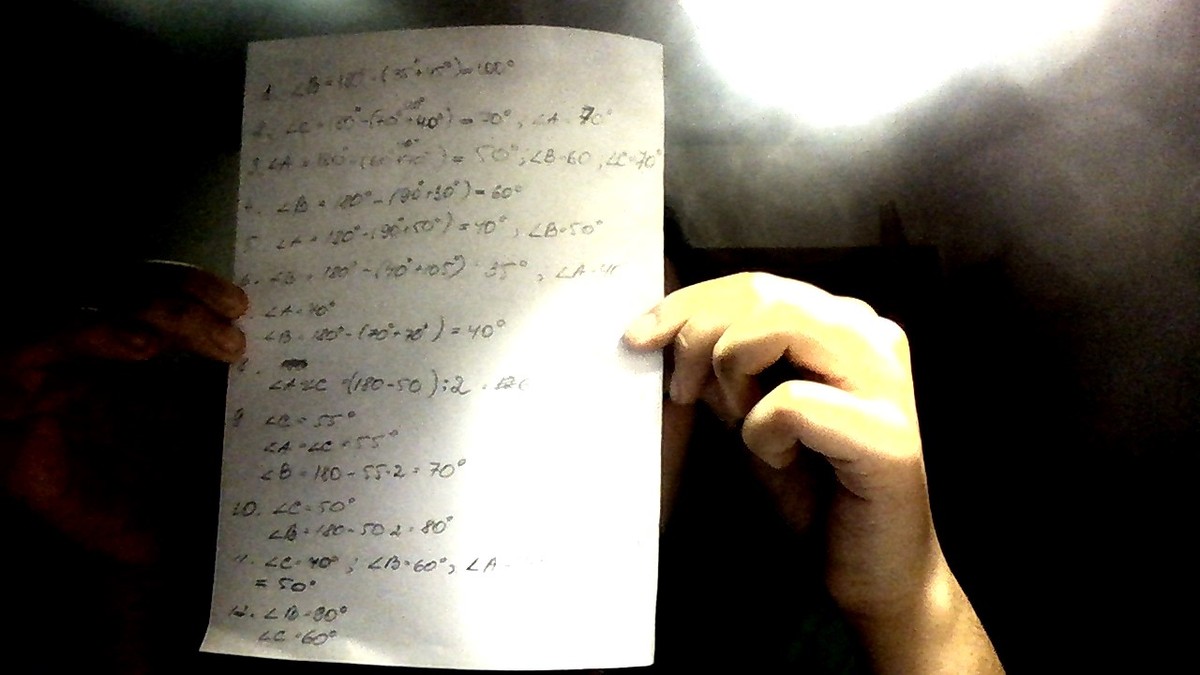 1. ∠B = 180° - (35° + 45°) = 100°
2. ∠C = 180° - (70° + 40°) = 70°, ∠A = 70°
3. ∠A = 180° - ( = 50°; ∠B = 60, ∠C = 70°
∠B = 180° - (90° + 30°) = 60°
5. ∠A = 180° - (90° + 50°) = 40°, ∠B = 50°
6. ∠B = 180° - (40° + 105°) 35°, ∠A =
∠A = 70°
∠B = 180° - (70° + 70°) = 40°
∠A = ∠C = (180 - 50) : 2 =
9. ∠C = 55°
∠A = ∠C = 55°
∠B = 180 - 55·2 = 70°
10. ∠C = 50°
∠B = 180 - 50·2 = 80°
11. ∠C = 40°; ∠B = 60°, ∠A
= 50°
12. ∠B = 90°
∠C = 60°